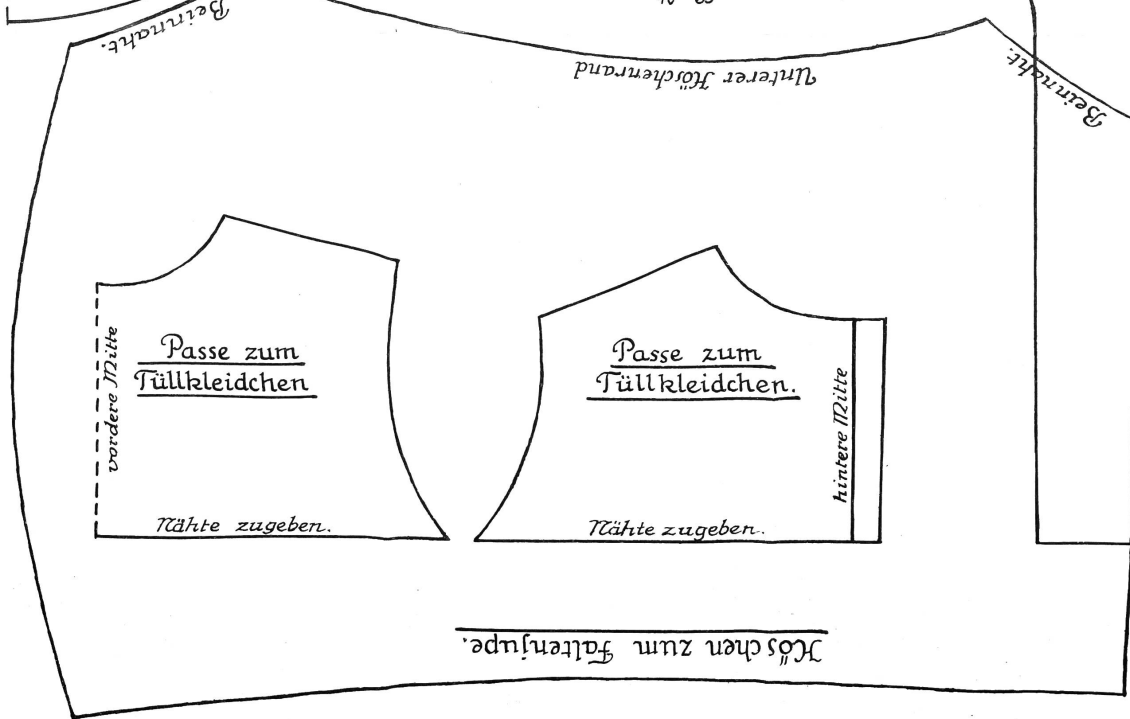 Beinnaht.
Unterer Höschenrand
Beinnaht.
vordere Mitte
Passe zum
Tüllkleidchen
Nähte zugeben.
Passe zum
Tüllkleidchen.
hintere Mitte
Nähte zugeben.
Höschen zum Faltenjupe.